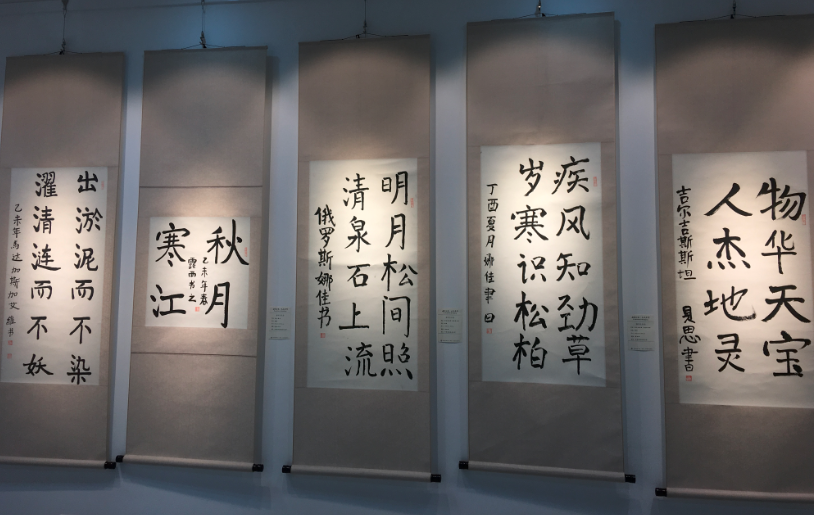 出淤泥而不染
濯清涟而不妖
乙未年马达加斯加艾
秋月
寒江
乙未年春
露西书之
明月松间照
清泉石上流
俄罗斯娜佳书
疾风知劲草
岁寒识松柏
丁酉夏月娜佳
物华天宝
人杰地灵
吉尔吉斯斯坦
思書